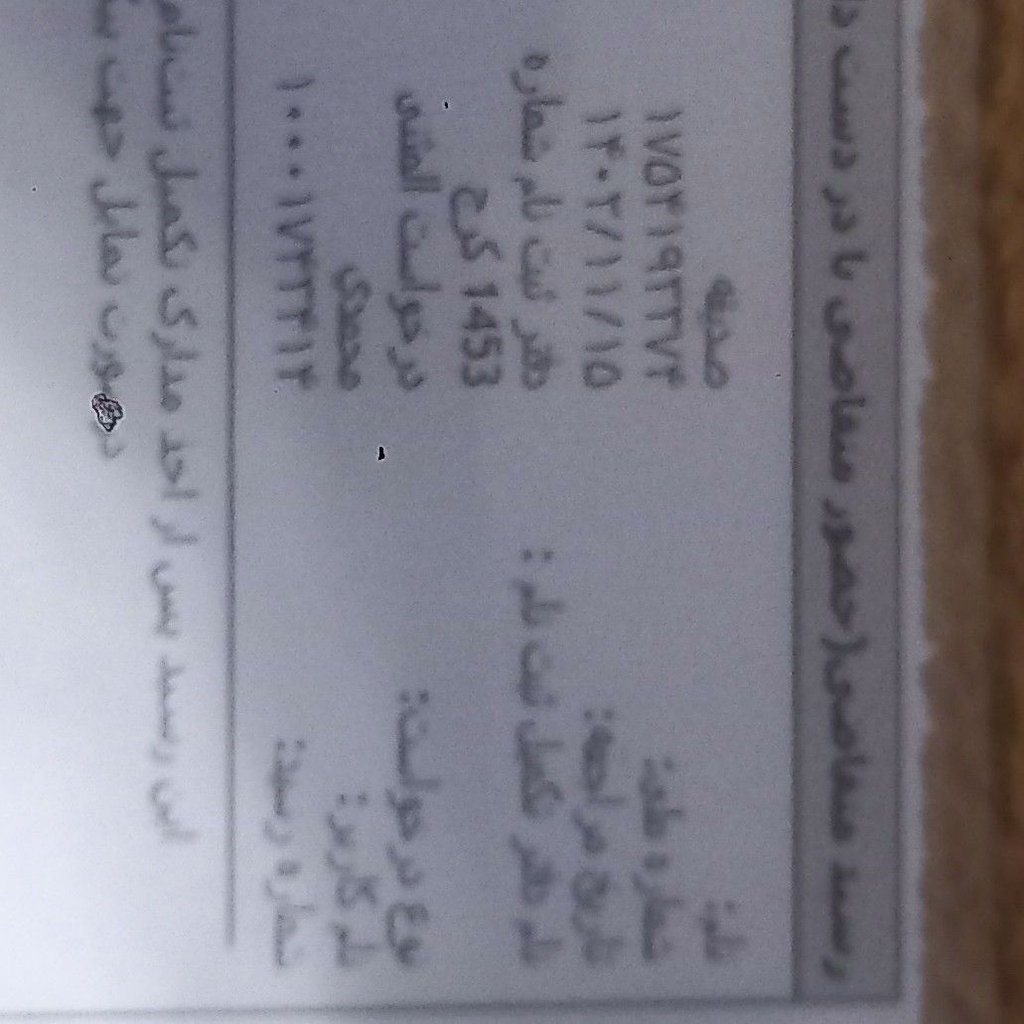 رسید متقاضی(حضور متقاضی با در دست دا
نام: صدیقه
شماره ملی: ۱۷۵۲۱۹۲۲۷۴
تاریخ مراجعه: ۱۴۰۲/۱۱/۱۵
نام دفتر تکمیل ثبت نام: دفتر ثبت نام شماره
1453 کرج
نوع درخواست: درخواست المثنی
نام کاربر: محمدی
شماره رسید: ۱۰۰۰۱۷۲۲۳۱۴
این رسید پس از اخذ مدارک تکمیل ثبت‌نام
درصورت تمایل جهت